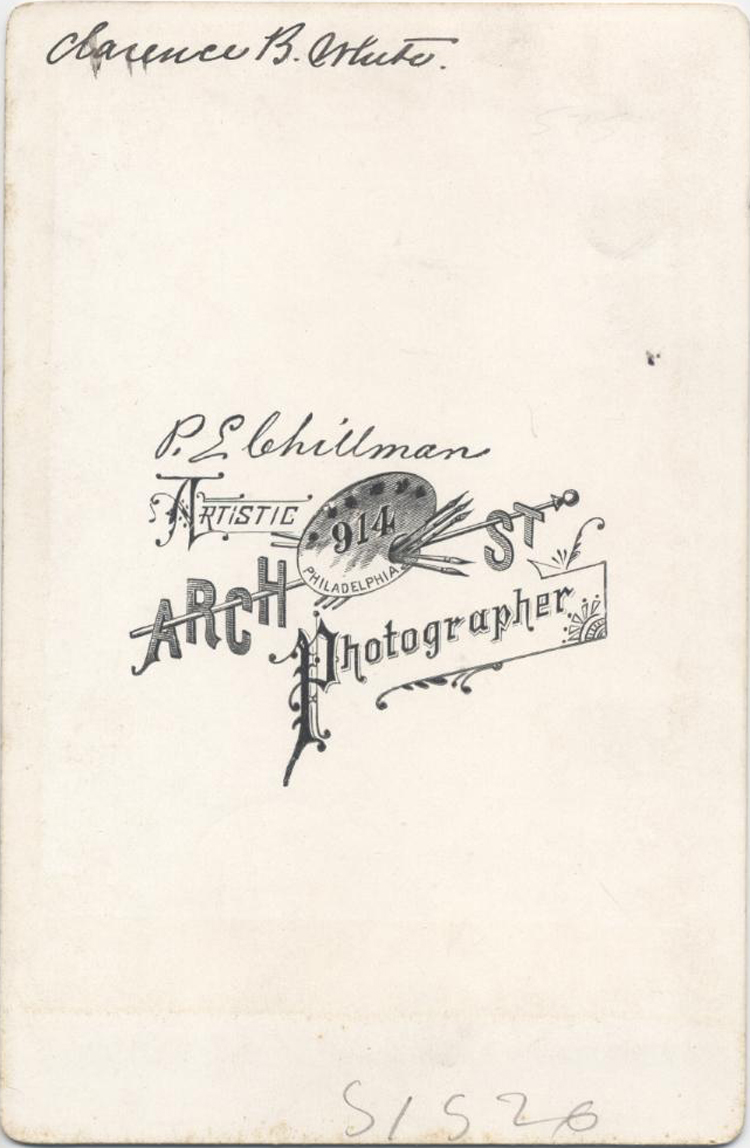 Clarence B. White.
P. E. Chillman
ARTISTIC
914
PHILADELPHIA
ARCH ST
Photographer
S1526